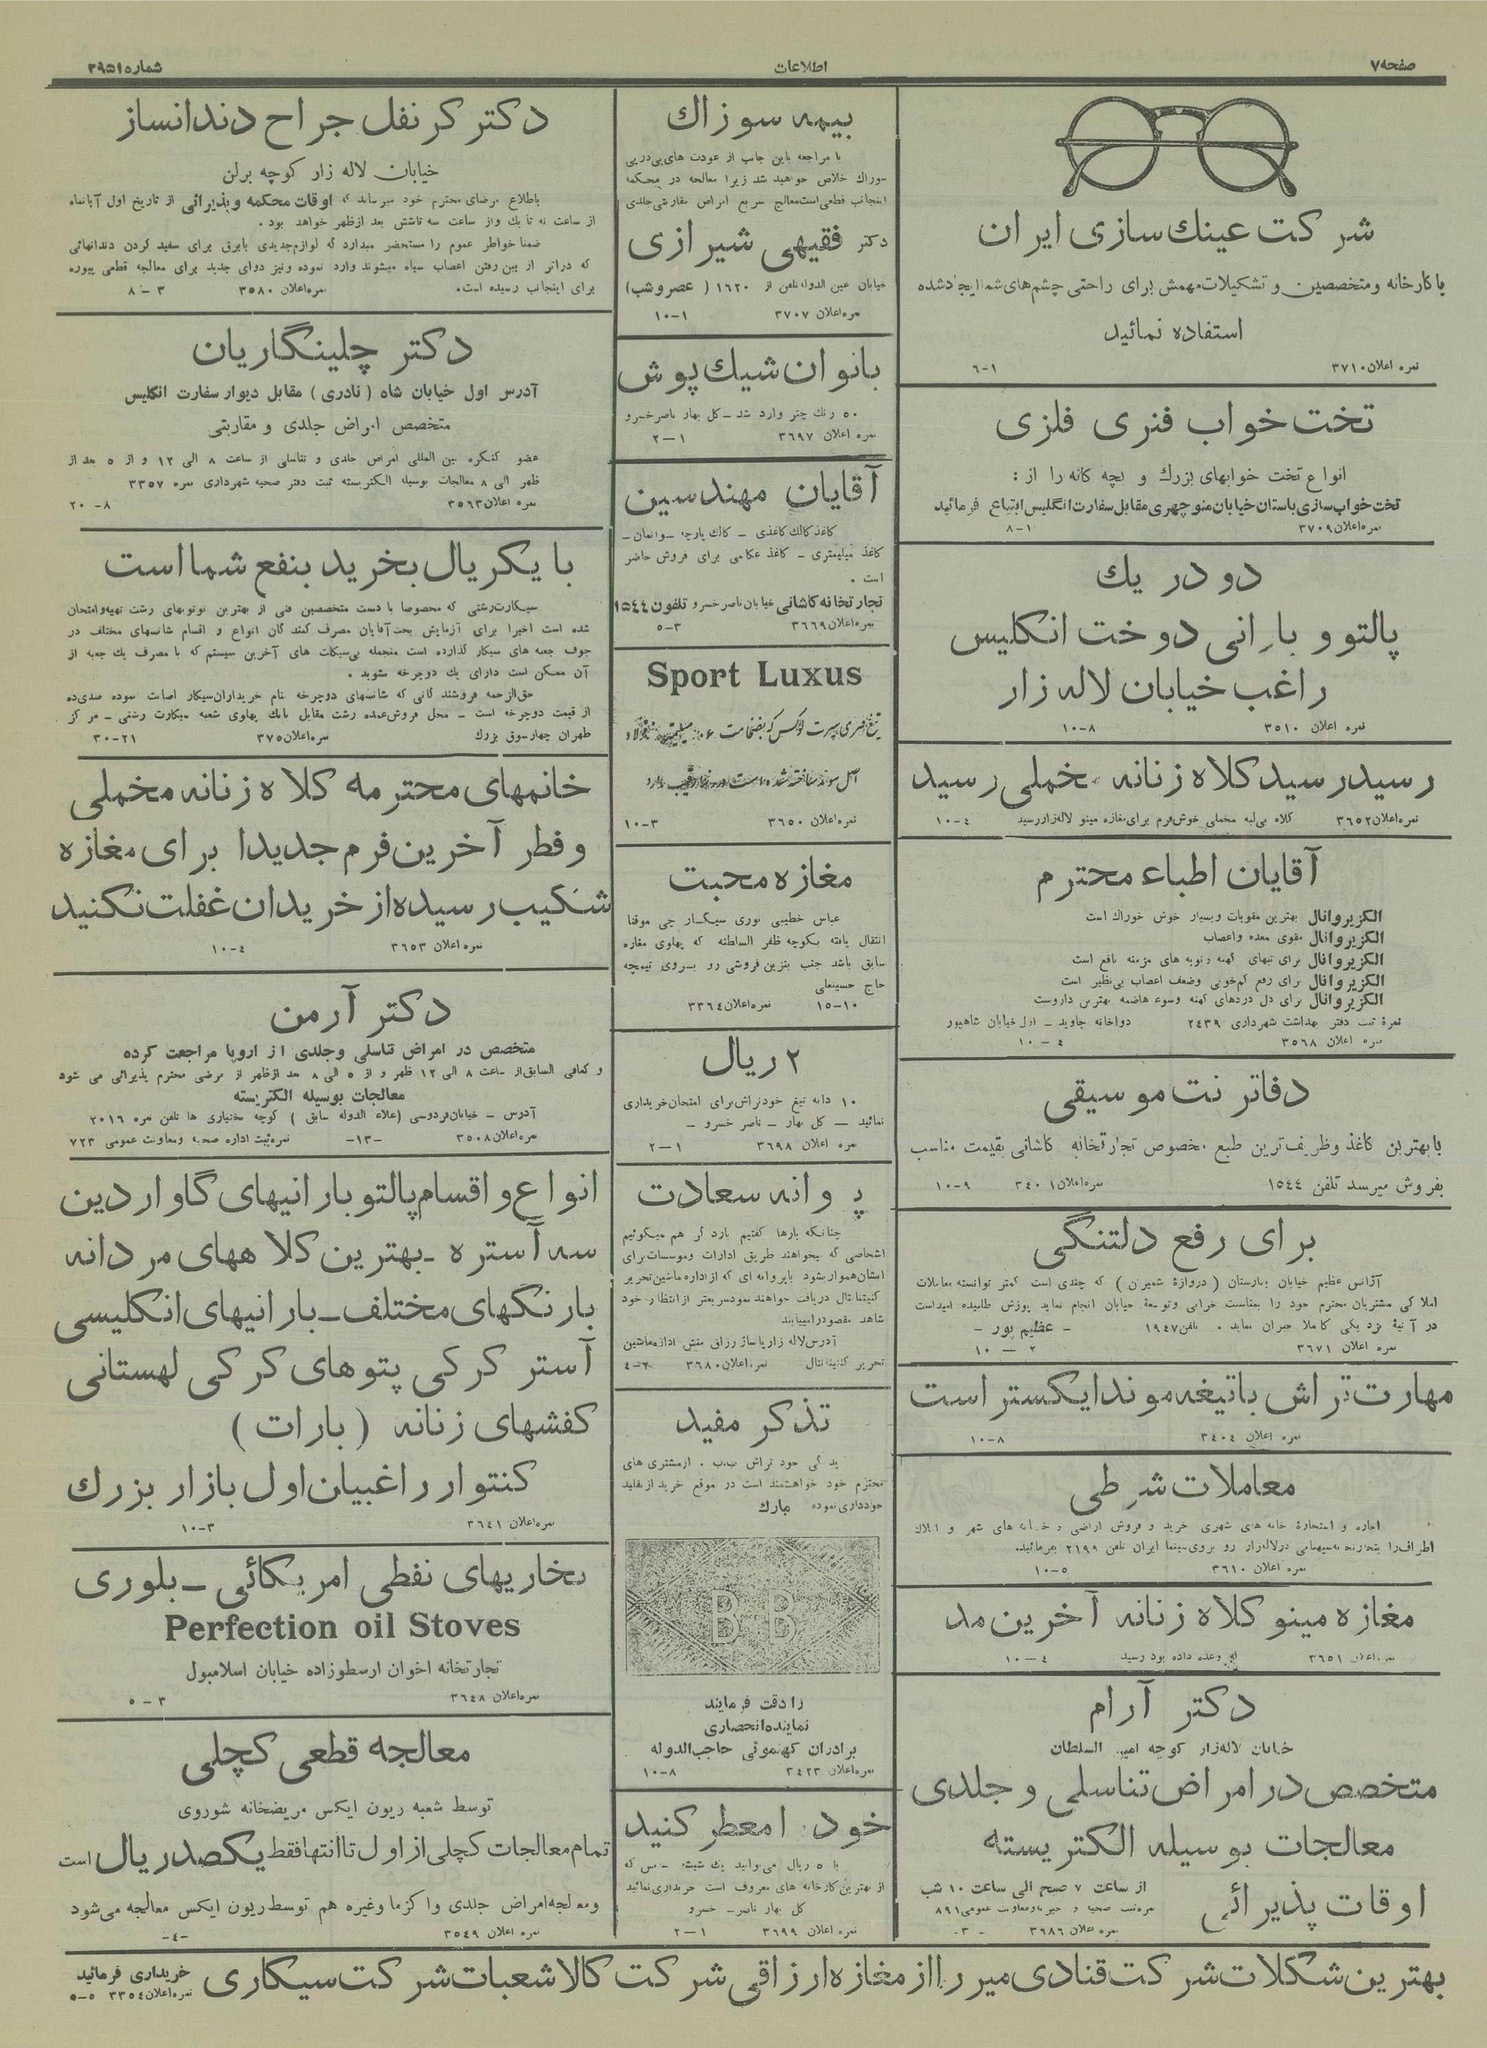 صفحه ۷
اطلاعات
شماره ۳۹۵۱
شرکت عینک سازی ایران
با کارخانه و متخصصین و تشکیلات مهمش برای راحتی چشم های شما ایجاد شده
استفاده نمائید
نمره اعلان ۳۷۱۰ ۱-۶
تخت خواب فنری فلزی
انواع تخت خوابهای بزرک و بچه کانه را از :
تخت خواب سازی باستان خیابان منوچهری مقابل سفارت انگلیس ابتیاع فرمائید
نمره اعلان ۳۷۰۹ ۱-۸
دو در یک
پالتو و بارانی دوخت انکلیس
راغب خیابان لاله زار
نمره اعلان ۳۵۱۰ ۸-۱۰
رسید رسید کلاه زنانه مخملی رسید
کلاه بی لبه مخملی خوش فرم برای مغازه مینو لاله زار رسید
نمره اعلان ۳۶۵۲ ۴-۱۰
آقایان اطباء محترم
الکزیر وانال بهترین مقویات و بسیار خوش خوراک است
الکزیر وانال مقوی معده و اعصاب
الکزیر وانال برای تبهای کهنه و نوبه های مزمنه نافع است
الکزیر وانال برای رفع کم خونی وضعف اعصاب بی نظیر است
الکزیر وانال برای دل دردهای کهنه وسوء هاضمه بهترین داروست
نمرهٔ ثبت دفتر بهداشت شهرداری ۲۴۳۹ دواخانه جاوید - اول خیابان شاهپور
نمره اعلان ۳۵۶۸ ۴-۱۰
دفاتر نت موسیقی
با بهترین کاغذ وظریف ترین طبع مخصوص تجارتخانه کاشانی بقیمت مناسب
بفروش میرسد تلفن ۱۵۴۴ نمره اعلان ۳۴۰۱ ۹-۱۰
برای رفع دلتنگی
آژانس عظیم خیابان بهارستان (دروازهٔ شمیران) که چندی است کمتر توانسته معاملات
املاکی مشتریان محترم خود را بمناسبت خرابی وتوسعهٔ خیابان انجام نماید پوزش طلبیده امیداست
در آتیهٔ نزدیکی کاملا جبران نماید . تلفن ۱۹۴۷ - عظیم پور -
نمره اعلان ۳۶۷۱ ۲-۱۰
مهارت تراش با تیغه موند ایکستر است
نمره اعلان ۳۴۰۴ ۸-۱۰
معاملات شرطی
اجاره و استجارهٔ خانه های شهری خرید و فروش اراضی و خانه های شهر و املاک
اطراف را بتجارتخانه سهامی در لاله زار رو بروی سینما ایران تلفن ۲۱۹۹ بفرمائید.
نمره اعلان ۳۶۱۰ ۵-۱۰
مغازه مینو کلاه زنانه آخرین مد
که وعده داده بود رسید
نمره اعلان ۳۶۵۱ ۴-۱۰
دکتر آرام
خیابان لاله زار کوچه امین السلطان
متخصص در امراض تناسلی و جلدی
معالجات بوسیله الکتریسته
اوقات پذیرائی
از ساعت ۷ صبح الی ساعت ۱۰ شب
نمره ثبت صحیه و خیریه و معاونت عمومی ۸۹۱
نمره اعلان ۳۶۸۶ -۳-
بیمه سوزاک
با مراجعه باین جانب از عودت های پی در پی
سوزاک خلاص خواهید شد زیرا معالجه در محکمه
اینجانب قطعی است معالج سریع امراض مقاربتی جلدی
دکتر فقیهی شیرازی
خیابان عین الدوله تلفن از ۱۶۲۰ ( عصر وشب)
نمره اعلان ۳۷۰۷ ۱-۱۰
بانوان شیک پوش
۵۰ رنک چتر وارد شد - کل بهار ناصر خسرو
نمره اعلان ۳۶۹۷ ۱-۲
آقایان مهندسین
کاغذ کالک کاغذی - کالک پارچه - واتمان -
کاغذ میلیمتری - کاغذ عکاسی برای فروش حاضر
است .
تجارتخانه کاشانی خیابان ناصر خسرو تلفون ۱۵۴۴
نمره اعلان ۳۶۶۹ ۳-۵
Sport Luxus
نمره اعلان ۳۶۵۰ ۳-۱۰
مغازه محبت
عباس خطیبی نوری سیگار چی موقتا
انتقال یافته بکوچه ظفر السلطنه که پهلوی مغازه
سابق باشد جنب بنزین فروشی رو بروی تیمچه
حاج حسینعلی
نمره اعلان ۳۳۶۴ ۱۰-۱۵
۲ ریال
۱۰ دانه تیغ خود تراش برای امتحان خریداری
نمائید - کل بهار - ناصر خسرو -
نمره اعلان ۳۶۹۸ ۱-۲
پروانه سعادت
چنانکه بارها گفتیم بار دگر هم میگوئیم
اشخاصی که میخواهند طریق ادارات وموسسات برای
ایشان هموار بشود با پروانه ای که از اداره ماشین تحریر
کنتینانتال دریافت خواهند نمود سریعتر از انتظار خود
شاهد مقصود را میبابند
آدرس لاله زار پاساژ رزاق منش اداره ماشین
تحریر کنتینانتال نمره اعلان ۳۶۸۰ ۲-۴
تذکر مفید
یدکی خود تراش ب.ب . از مشتری های
محترم خود خواهشمند است در موقع خرید از تقلید
خودداری نموده مارک
BB
را دقت فرمایند
نماینده انحصاری
برادران کهنموئی حاجب الدوله
نمره اعلان ۳۴۲۳ ۸-۱۰
خود را معطر کنید
با ۵ ریال می توانید یک شیشه اسانس که
از بهترین کارخانه های معروف است خریداری نمائید
کل بهار ناصر - خسرو
نمره اعلان ۳۶۹۹ ۱-۲
دکتر کرنفل جراح دندانساز
خیابان لاله زار کوچه برلن
باطلاع مرضای محترم خود میرساند که اوقات محکمه وپذیرائی از تاریخ اول آبانماه
از ساعت نه تا یک واز ساعت سه تا شش بعد از ظهر خواهد بود .
ضمنا خواطر عموم را مستحضر میدارد که لوازم جدیدی با برق برای سفید کردن دندانهائی
که در اثر از بین رفتن اعصاب سیاه میشوند وارد نموده ونیز دوای جدید برای معالجه قطعی پیوره
برای اینجانب رسیده است. نمره اعلان ۳۵۸۰ ۳-۸
دکتر چلینگاریان
آدرس اول خیابان شاه (نادری) مقابل دیوار سفارت انکلیس
متخصص امراض جلدی و مقاربتی
عضو کنگره بین المللی امراض جلدی و تناسلی از ساعت ۸ الی ۱۲ و از ۵ بعد از
ظهر الی ۸ معالجات بوسیله الکتریسته ثبت دفتر صحیه شهرداری نمره ۳۳۵۷
نمره اعلان ۳۵۶۳ ۸-۲۰
با یکریال بخرید بنفع شما است
سیکارت رشتی که مخصوصا با دست متخصصین فنی از بهترین توتونهای رشت تهیه وامتحان
شده است اخیرا برای آزمایش بخت آقایان مصرف کنند گان انواع و اقسام شانسهای مختلف در
جوف جعبه های سیکار گذارده است منجمله بیسیکلت های آخرین سیستم که با مصرف یک جعبه از
آن ممکن است دارای یک دوچرخه بشوید .
حق الزحمه فروشند گانی که شانسهای دوچرخه بنام خریداران سیکار اصابت نموده صدی ده
از قیمت دوچرخه است - محل فروش عمده رشت مقابل بانک پهلوی شعبه سیکارت رشتی - مرکز
طهران چهارسوق بزرک نمره اعلان ۳۷۵ ۲۱-۳۰
خانمهای محترمه کلاه زنانه مخملی
و فطر آخرین فرم جدیدا برای مغازه
شکیب رسیده از خریدان غفلت نکنید
نمره اعلان ۳۶۵۳ ۴-۱۰
دکتر آرمن
متخصص در امراض تناسلی وجلدی از اروپا مراجعت کرده
و کمافی السابق از ساعت ۸ الی ۱۲ ظهر و از ۵ الی ۸ بعد از ظهر از مرضی محترم پذیرائی می شود
معالجات بوسیله الکتریسته
آدرس - خیابان فردوسی (علاء الدوله سابق ) کوچه بختیاری ها تلفن نمره ۲۰۱۶
نمره اعلان ۳۵۰۸ -۱۳- نمره ثبت اداره صحیه ومعاونت عمومی ۷۲۳
انواع و اقسام پالتو بارانیهای گاواردین
سه آستره - بهترین کلاههای مردانه
بارنگهای مختلف - بارانیهای انکلیسی
آستر کرکی پتوهای کرکی لهستانی
کفشهای زنانه (بارات)
کنتوار راغبیان اول بازار بزرک
نمره اعلان ۳۶۴۱ ۳-۱۰
بخاریهای نفطی امریکائی - بلوری
Perfection oil Stoves
تجارتخانه اخوان ارسطوزاده خیابان اسلامبول
نمره اعلان ۳۶۴۸ ۳-۵
معالجه قطعی کچلی
توسط شعبه ریون ایکس مریضخانه شوروی
تمام معالجات کچلی از اول تا انتها فقط یکصد ریال است
ومعالجه امراض جلدی واکزما وغیره هم توسط ریون ایکس معالجه می شود
نمره اعلان ۳۵۴۹ -۴-
بهترین شکلات شرکت قنادی میر را از مغازه ارزاقی شرکت کالا شعبات شرکت سیکاری خریداری فرمائید
نمره اعلان ۳۳۵۴ ۵-۵